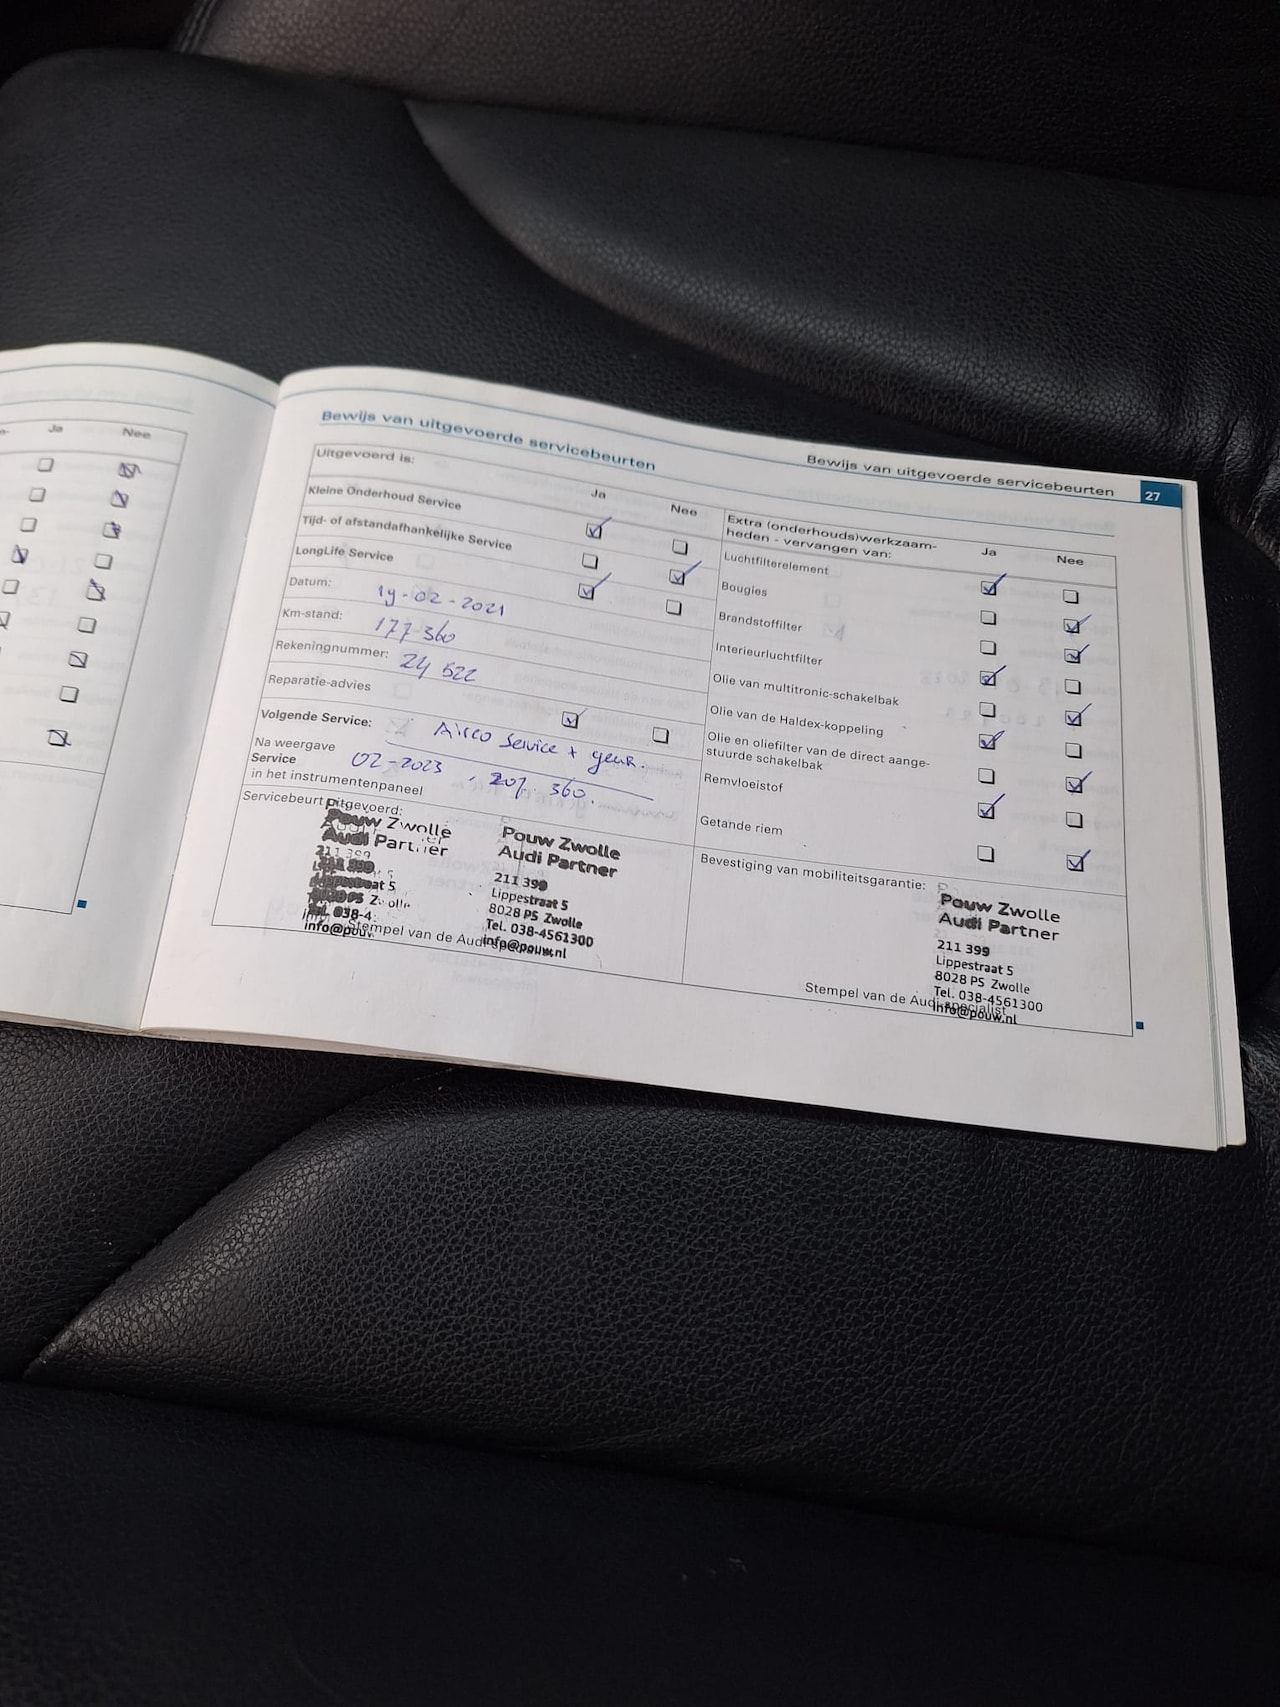 Ja
Nee
Bewijs van uitgevoerde servicebeurten
27
Bewijs van uitgevoerde servicebeurten
Uitgevoerd is:
Ja
Nee
Kleine Onderhoud Service
Tijd- of afstandafhankelijke Service
LongLife Service
Datum:
19-02-2021
Km-stand:
177 360
Rekeningnummer:
24 522
Reparatie-advies
Volgende Service:
Airco Service + geur.
Na weergave
Service
in het instrumentenpaneel
02-2023
207. 360.
Servicebeurt uitgevoerd:
Pouw Zwolle
Audi Partner
211 399
Tel. 038-4
info@pouw
Pouw Zwolle
Audi Partner
211 399
Lippestraat 5
8028 PS Zwolle
Tel. 038-4561300
info@pouw.nl
Stempel van de Audi-specialist
Extra (onderhouds)werkzaam-
heden - vervangen van:
Ja
Nee
Luchtfilterelement
Bougies
Brandstoffilter
Interieurluchtfilter
Olie van multitronic-schakelbak
Olie van de Haldex-koppeling
Olie en oliefilter van de direct aange-
stuurde schakelbak
Remvloeistof
Getande riem
Bevestiging van mobiliteitsgarantie:
Pouw Zwolle
Audi Partner
211 399
Lippestraat 5
8028 PS Zwolle
Tel. 038-4561300
info@pouw.nl
Stempel van de Audi-specialist